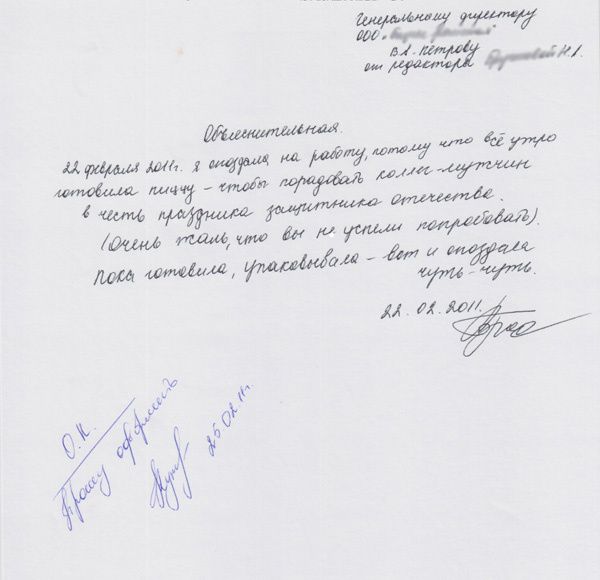 Генеральному директору
ООО
В.А. Петрову
от редактора Н.А.
Объяснительная.
22 февраля 2011г. я опоздала на работу, потому что всё утро
готовила пиццу – чтобы порадовать коллег-мужчин
в честь праздника защитника отечества.
(Очень жаль, что вы не успели попробовать).
Пока готовила, упаковывала – вот и опоздала
чуть-чуть.
22.02.2011.
О.К.
Прошу оформить
25.02.11г.